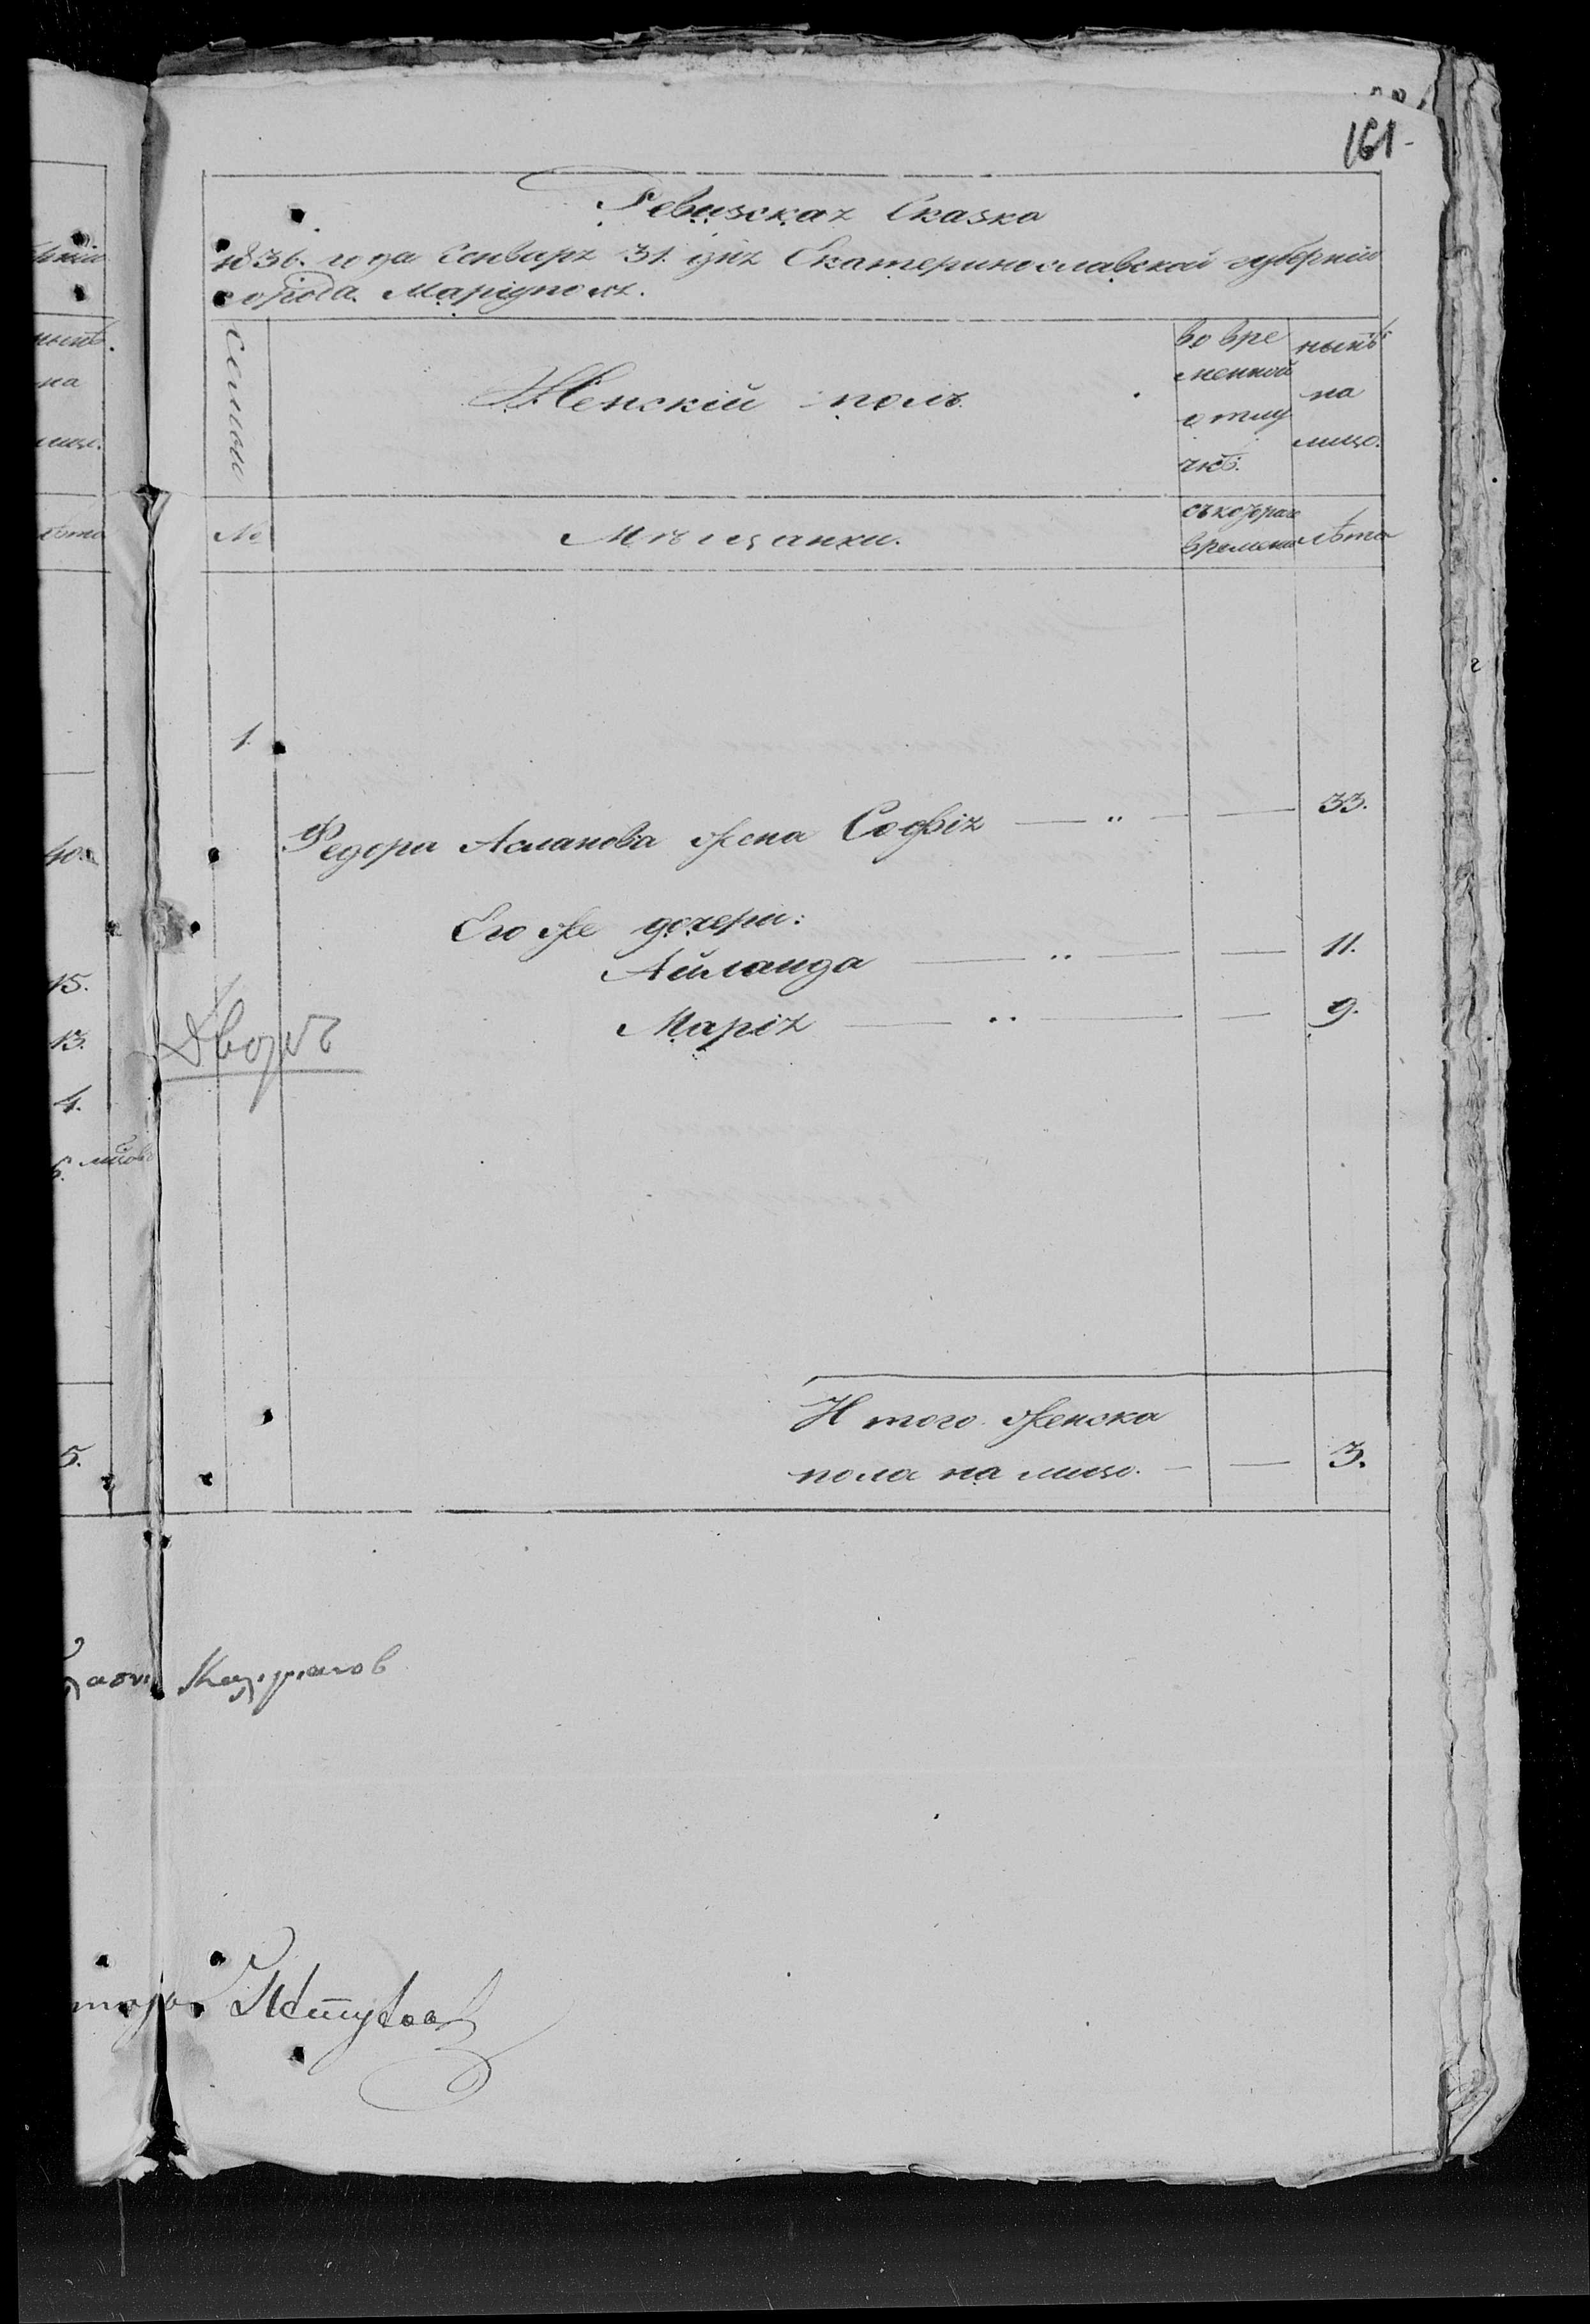 161
Ревизская Сказка
1836. года Генваря 31. дня Екатеринославской губерніи
города Маріуполя.
Семьи
Женскій полъ.
во вре
менной
отлу
чкѣ.
нынѣ
на
лицо.
№
Мѣщанки.
съ котораго
времени
лѣта
1.
Федора Асланова жена Софія — „ — — 33.
Его же дочери:
Айланда — „ — — 11.
Марія — „ — — 9.
Итого женска
пола на лицо. — — 3.
нынѣ.
на
лицо.
лѣта
40.
15.
13.
4.
6.
5.